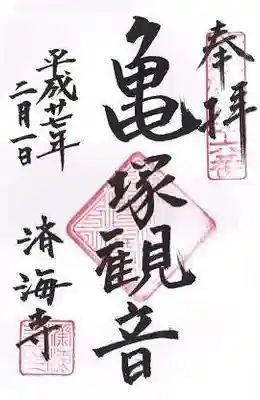 奉拝
亀塚観音
平成廿七年
二月一日
済海寺